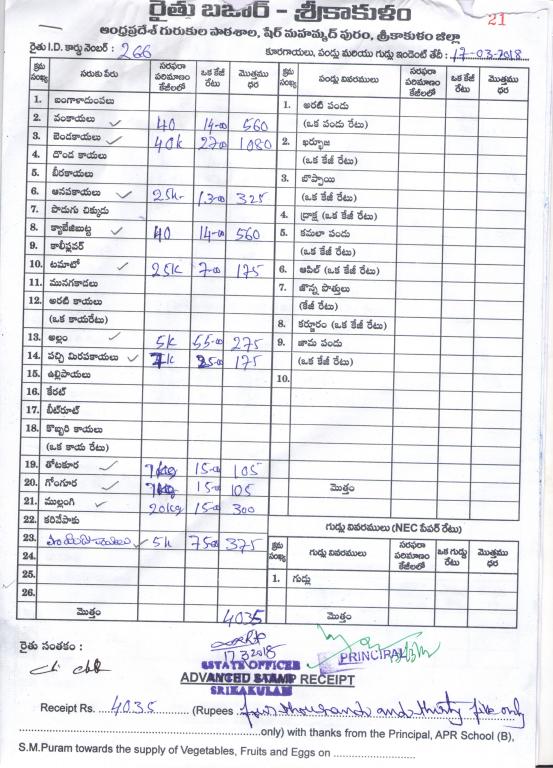 21
రైతు బజార్ - శ్రీకాకుళం
ఆంధ్రప్రదేశ్ గురుకుల పాఠశాల, షేర్ మహమ్మద్ పురం, శ్రీకాకుళం జిల్లా
రైతు I.D. కార్డు నెంబర్ : 266 కూరగాయలు, పండ్లు మరియు గుడ్లు ఇండెంట్ తేదీ : 17-03-2018
క్రమ సంఖ్య సరుకు పేరు సరఫరా పరిమాణం కేజీలలో ఒక కేజీ రేటు మొత్తము ధర
1. బంగాళాదుంపలు
2. వంకాయలు ✓ 40 14-00 560
3. బెండకాయలు ✓ 40k 27-00 1080
4. దొండ కాయలు
5. బీరకాయలు
6. ఆనపకాయలు ✓ 25k 13-00 325
7. పొడుగు చిక్కుడు
8. క్యాబేజిబుట్ట ✓ 40 14-00 560
9. కాలీఫ్లవర్
10. టమాటో ✓ 25k 7-00 175
11. మునగకాడలు
12. అరటి కాయలు
(ఒక కాయరేటు)
13. అల్లం ✓ 5k 55-00 275
14. పచ్చి మిరపకాయలు ✓ 7k 25-00 175
15. ఉల్లిపాయలు
16. కేరట్
17. బీట్‌రూట్
18. కొబ్బరి కాయలు
(ఒక కాయ రేటు)
19. తోటకూర ✓ 7kg 15-00 105
20. గోంగూర ✓ 7kg 15-00 105
21. ముల్లంగి ✓ 20kg 15-00 300
22. కరివేపాకు
23. ✓ 5k 75-00 375
24.
25.
26.
మొత్తం 4035
క్రమ సంఖ్య పండ్లు వివరములు సరఫరా పరిమాణం కేజీలలో ఒక కేజీ రేటు మొత్తము ధర
1. అరటి పండు
(ఒక పండు రేటు)
2. ఖర్భూజ
(ఒక కేజీ రేటు)
3. బొప్పాయి
(ఒక కేజీ రేటు)
4. ద్రాక్ష (ఒక కేజీ రేటు)
5. కమలా పండు
(ఒక కేజీ రేటు)
6. ఆపిల్ (ఒక కేజీ రేటు)
7. జొన్న పొత్తులు
(కేజీ రేటు)
8. కర్జూరం (ఒక కేజీ రేటు)
9. జామ పండు
(ఒక కేజీ రేటు)
10.
మొత్తం
గుడ్లు వివరములు (NEC పేపర్ రేటు)
క్రమ సంఖ్య గుడ్లు వివరములు సరఫరా పరిమాణం కేజీలలో ఒక గుడ్డు రేటు మొత్తము ధర
1. గుడ్లు
మొత్తం
రైతు సంతకం :
17.3.2018
ESTATE OFFICER
SRIKAKULAM
PRINCIPAL
ADVANCED STAMP RECEIPT
Receipt Rs. ....4035..... (Rupees .four thousand and thirty five only
..............only) with thanks from the Principal, APR School (B),
S.M.Puram towards the supply of Vegetables, Fruits and Eggs on ..............